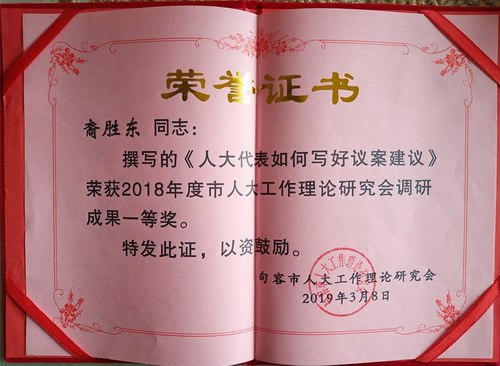 荣誉证书
裔胜东 同志：
撰写的《人大代表如何写好议案建议》
荣获2018年度市人大工作理论研究会调研
成果一等奖。
特发此证，以资鼓励。
句容市人大工作理论研究会
2019年3月8日